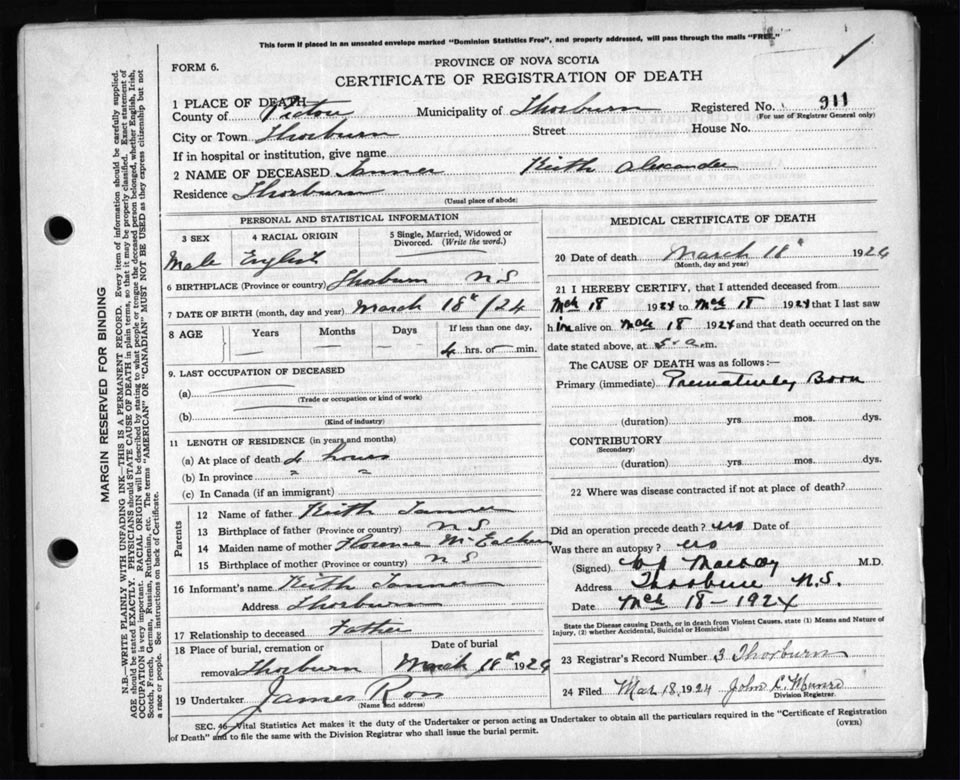 This form if placed in an unsealed envelope marked "Dominion Statistics Free", and properly addressed, will pass through the mails "FREE."
FORM 6.
PROVINCE OF NOVA SCOTIA
CERTIFICATE OF REGISTRATION OF DEATH
1 PLACE OF DEATH
County of Pictou Municipality of Thorburn Registered No. 911
(For use of Registrar General only)
City or Town Thorburn Street House No.
If in hospital or institution, give name
2 NAME OF DECEASED Tanner Keith Alexander
Residence Thorburn
(Usual place of abode)
PERSONAL AND STATISTICAL INFORMATION
3 SEX 4 RACIAL ORIGIN 5 Single, Married, Widowed or Divorced. (Write the word.)
Male English
6 BIRTHPLACE (Province or country) Thorburn N S
7 DATE OF BIRTH (month, day and year) March 18th /24
8 AGE Years Months Days If less than one day,
4 hrs. or min.
9. LAST OCCUPATION OF DECEASED
(a)
(Trade or occupation or kind of work)
(b)
(Kind of industry)
11 LENGTH OF RESIDENCE (in years and months)
(a) At place of death 4 hours
(b) In province " "
(c) In Canada (if an immigrant)
Parents
12 Name of father Keith Tanner
13 Birthplace of father (Province or country) N S
14 Maiden name of mother Florence
15 Birthplace of mother (Province or country) N S
16 Informant's name Keith Tanner
Address Thorburn
17 Relationship to deceased Father
18 Place of burial, cremation or removal Thorburn Date of burial March 18th 1924
19 Undertaker James Ross
(Name and address)
MEDICAL CERTIFICATE OF DEATH
20 Date of death March 18th 1924
(Month, day and year)
21 I HEREBY CERTIFY, that I attended deceased from
Mch 18 1924 to Mch 18 1924 that I last saw
him alive on Mch 18 1924 and that death occurred on
date stated above, at 5 a.m.
The CAUSE OF DEATH was as follows:—
Primary (immediate) Prematurely Born
(duration) yrs. mos. dys.
CONTRIBUTORY
(Secondary)
(duration) yrs. mos. dys.
22 Where was disease contracted if not at place of death?
Did an operation precede death? no Date of
Was there an autopsy? no
(Signed) M.D.
Address Thorburn N.S.
Date Mch 18-1924
State the Disease causing Death, or in death from Violent Causes, state (1) Means and Nature of
Injury, (2) whether Accidental, Suicidal or Homicidal
23 Registrar's Record Number 3 Thorburn
24 Filed Mar 18, 1924 John L. Munro
Division Registrar.
SEC. 46—Vital Statistics Act makes it the duty of the Undertaker or person acting as Undertaker to obtain all the particulars required in the "Certificate of Registration
of Death" and to file the same with the Division Registrar who shall issue the burial permit. (OVER)
MARGIN RESERVED FOR BINDING
N.B.—WRITE PLAINLY WITH UNFADING INK—THIS IS A PERMANENT RECORD. Every item of information should be carefully supplied.
AGE should be stated EXACTLY. PHYSICIANS should STATE CAUSE OF DEATH in plain terms, so that it may be properly classified. Exact statement of
OCCUPATION is very important. RACIAL ORIGIN will be described by stating to what people or tongue the deceased person belonged, whether English, Irish,
Scotch, French, German, Russian, Ruthenian, etc. The terms "AMERICAN" OR "CANADIAN" MUST NOT BE USED as they express citizenship but not
a race or people. See instructions on back of Certificate.